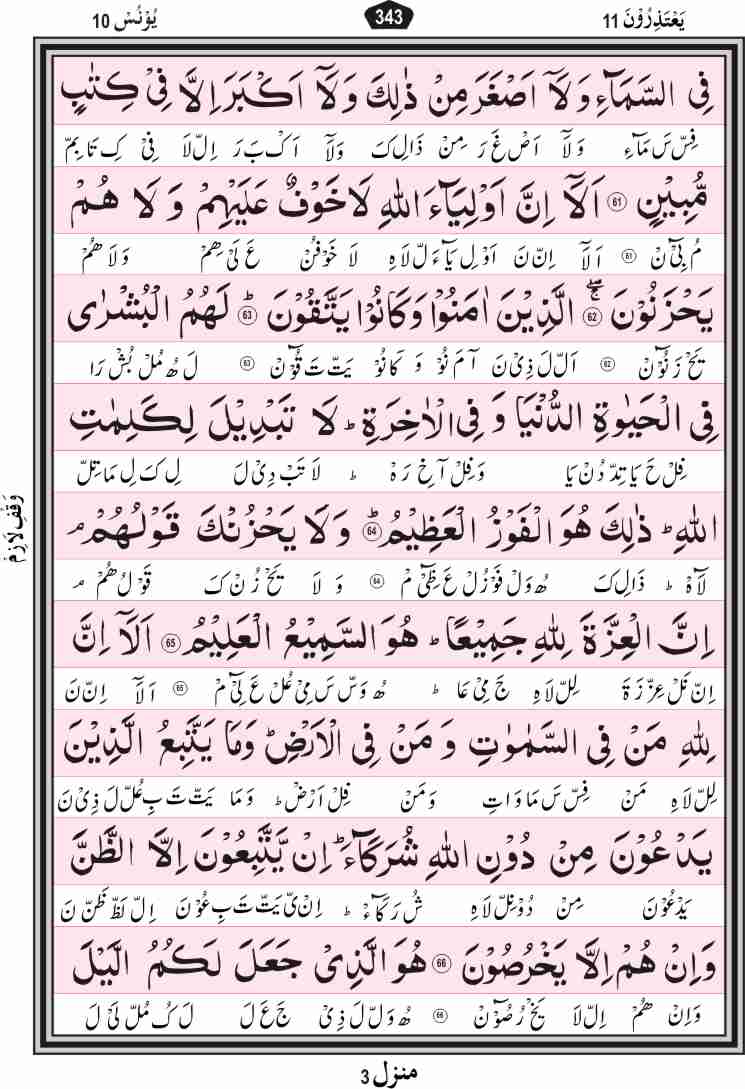 یَعْتَذِرُوْنَ 11
343
یُوْنُسْ 10
فِی السَّمَآءِ وَ لَاۤ اَصْغَرَ مِنْ ذٰلِكَ وَ لَاۤ اَكْبَرَ اِلَّا فِیْ كِتٰبٍ
فِسْ سَ مَآءِ وَ لَاۤ اَصْ غَ رَ مِنْ ذَالِ كَ وَلَاۤ اَكْ بَ رَ اِلْ لَا فِیْ كِ تَا بِمْ
مُّبِیْنٍ 61 اَلَاۤ اِنَّ اَوْلِیَآءَ اللّٰهِ لَا خَوْفٌ عَلَیْهِمْ وَ لَا هُمْ
مُ بِیْٓ نْ 61 اَ لَاۤ اِنْ نَ اَوْ لِ یَآءَ لْ لَا هِ لَا خَوْفُنْ عَ لَیْ هِمْ وَ لَا هُمْ
یَحْزَنُوْنَ 62 ج الَّذِیْنَ اٰمَنُوْا وَ كَانُوْا یَتَّقُوْنَ 63 ط لَهُمُ الْبُشْرٰی
یَحْ زَ نُوْٓ نْ 62 اَلْ لَ ذِیْ نَ آ مَ نُوْ وَ كَا نُوْ یَتْ تَ قُوْٓ نْ 63 لَ هُ مُلْ بُشْ رَا
فِی الْحَیٰوةِ الدُّنْیَا وَ فِی الْاٰخِرَةِ ط لَا تَبْدِیْلَ لِكَلِمٰتِ
فِلْ حَ یَا تِدْ دُنْ یَا وَ فِلْ آ خِ رَ هْ ط لَا تَبْ دِیْ لَ لِ كَ لِ مَا تِلْ
اللّٰهِ ط ذٰلِكَ هُوَ الْفَوْزُ الْعَظِیْمُ 64 ط وَ لَا یَحْزُنْكَ قَوْلُهُمْ م
لَا هْ ط ذَالِ كَ هُ وَلْ فَوْ زُلْ عَ ظِیْٓ مْ 64 وَ لَا یَحْ زُنْ كَ قَوْ لُ هُمْ م
وَقْفِ لَازِمْ
اِنَّ الْعِزَّةَ لِلّٰهِ جَمِیْعًا ط هُوَ السَّمِیْعُ الْعَلِیْمُ 65 اَلَاۤ اِنَّ
اِنْ نَلْ عِزْ زَ ةَ لِلْ لَا هِ جَ مِیْ عَا ط هُ وَسْ سَ مِیْ عُلْ عَ لِیْٓ مْ 65 اَ لَاۤ اِنْ نَ
لِلّٰهِ مَنْ فِی السَّمٰوٰتِ وَ مَنْ فِی الْاَرْضِ ط وَمَا یَتَّبِعُ الَّذِیْنَ
لِلْ لَا هِ مَنْ فِسْ سَ مَا وَ اتِ وَ مَنْ فِلْ اَرْضْ ط وَ مَا یَتْ تَ بِ عُلْ لَ ذِیْ نَ
یَدْعُوْنَ مِنْ دُوْنِ اللّٰهِ شُرَكَآءَ ط اِنْ یَّتَّبِعُوْنَ اِلَّا الظَّنَّ
یَدْ عُوْنَ مِنْ دُوْ نِلْ لَا هِ شُ رَ كَآءْ ط اِنْ یْ یَتْ تَ بِ عُوْنَ اِلْ لَظْ ظَنْ نَ
وَ اِنْ هُمْ اِلَّا یَخْرُصُوْنَ 66 هُوَ الَّذِیْ جَعَلَ لَكُمُ الَّیْلَ
وَ اِنْ هُمْ اِلْ لَا یَخْ رُ صُوْٓ نْ 66 هُ وَلْ لَ ذِیْ جَ عَ لَ لَ كُ مُلْ لَیْ لَ
منزل 3